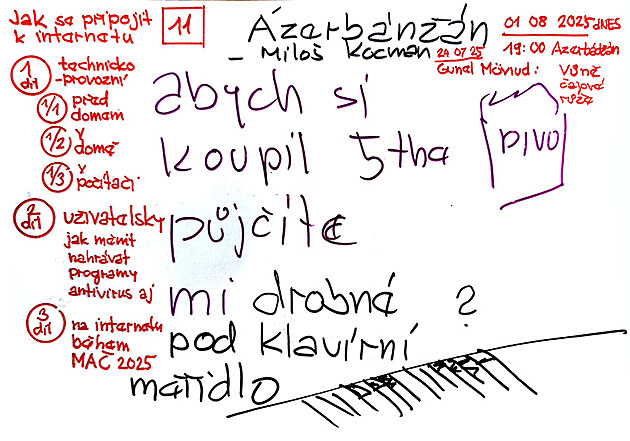 Jak se připojit
k internetu
11
Ázerbánžán
- Miloš Kocman 24 07 25
01 08 2025 dNES
19:00 Azerbážán
Gunel Mövlud: Vůně
čajové
růže
1 díl technicko
-provozní
1/1 před
domem
1/2 v
domě
1/3 v
počítači
2 díl uživatelsky
jak měnit
nahrávat
programy
antivirus aj
3 díl na internetu
během
MAČ 2025
abych si
koupil 5tha
PIVO
půjčíte
mi drobné ?
pod klavírní
mařidlo